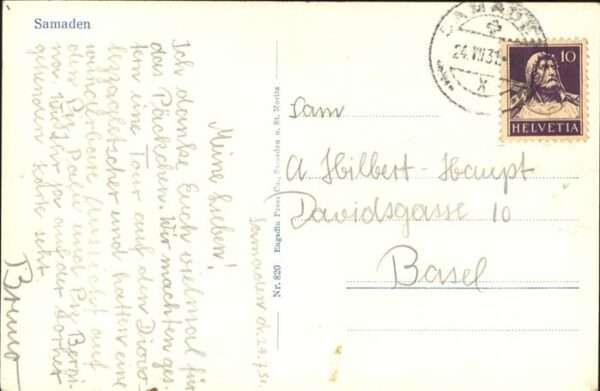 Samaden
Samaden d. 24.7.31.
Meine Lieben!
Ich danke Euch vielmal für
das Päckchen. Wir machten ges-
tern eine Tour auf den Diavo-
lezzagletscher und hatten eine
wunderbare Aussicht auf
den Piz Palü und Piz Berni-
na. Wie Ihr ja auf der
Karte seht
Bruno
Nr. 820 Engadin Press Co., Samaden u. St. Moritz
SAMADEN
24.VII.31.
X
10
HELVETIA
Fam
A. Hilbert-Haupt
Davidsgasse 10
Basel